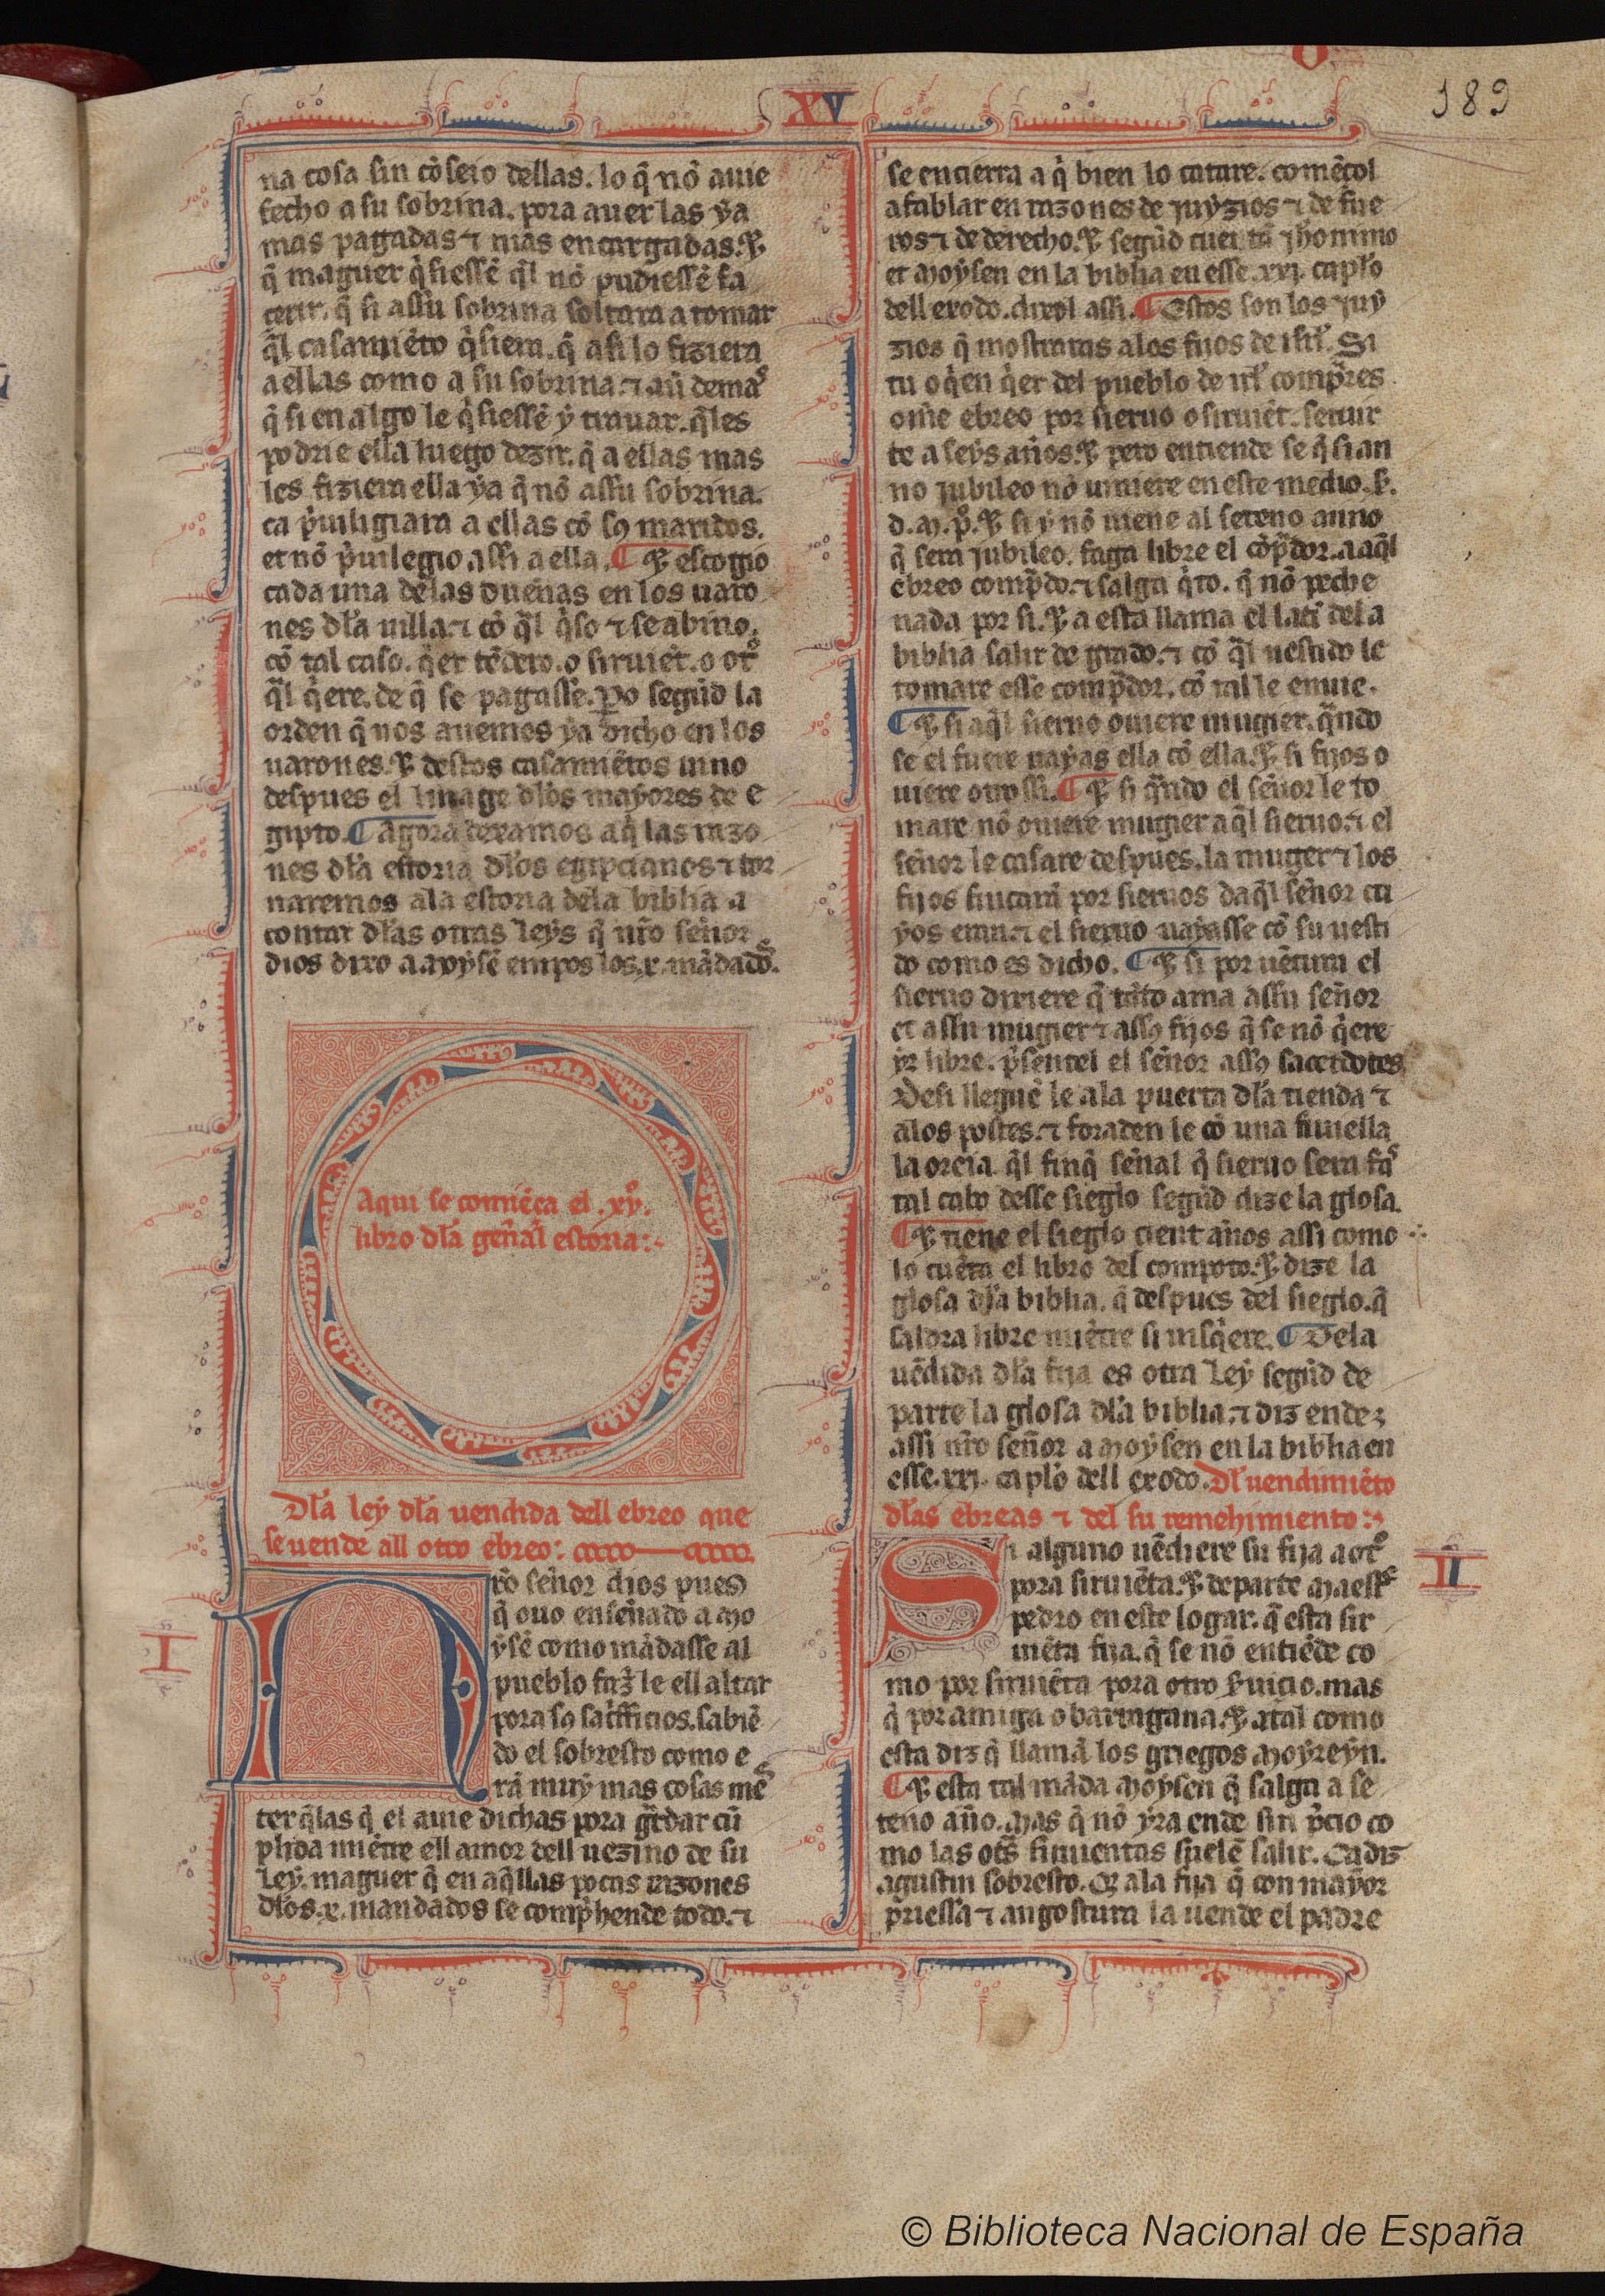 XV
189
na cosa sin cõseio dellas. lo q̃ nõ auie
fecho a su sobrina. pora auer las ya
mas pagadas ⁊ mas encargadas. ⁊
q̃ maguer q̉siessẽ q̃l nõ pudiessẽ fa
q̃ si assu sobrina soltara a tomar
q̃l casamiẽto q̉siera. q̃ assi lo fiziera
a ellas como a su sobrina. ⁊ aũ demas
q̃ si en algo le q̉siessẽ y trauar. q̃les
podrie ella luego dezir. q̃ a ellas mas
les fiziera ella ya q̃ nõ assu sobrina.
ca p̉uiligiara a ellas cõ sꝯ maridos.
et nõ p̉uilegio assi a ella. ¶ ⁊ escogio
cada una delas duenas en los uaro
nes dl̃a uilla. ⁊ cõ q̃l q̉so ⁊ se abino.
cõ tal caso. q̉er tẽdero. o siruiẽt. o otº
q̃l q̉ere. de q̃ se pagasse. ꝑo segũd la
orden q̃ nos auemos ya dicho en los
uarones. ⁊ destos casamiẽtos uino
despues el linage dl̃os mayores de e
gipto. ¶ Agora dexamos aq̉ las razo
nes dl̃a estoria dl̃os egipcianos ⁊ tor
naremos ala estoria dela biblia a
contar dl̃as otras leys q̃ nr̃o señor
dios dixo a moysẽ empos los .x. mãdados.
Aqui se comiẽça el .xvº.
libro dl̃a geñal estoria:
Dl̃a ley dl̃a uendida dell ebreo que
se uende all otro ebreo:
I
Nr̃o señor dios pues
q̃ ouo ensenado a mo
ysẽ como mãdasse al
pueblo faz̃ le ell altar
pora sꝯ sac̉fficios. sabiẽ
do el sobresto como e
rã muy mas cosas mes̃
ter q̃las q̃ el auie dichas pora gr̃dar cũ
plida miẽtre ell amor dell uezino de su
ley. maguer q̃ en aq̃llas pocas razones
dl̃os .x. mandados se comp̃hende todo. ⁊
se encierra a q̉ bien lo catare. comẽcol
a fablar en razones de juyzios ⁊ de fue
ros ⁊ de derecho. ⁊ segũd cuentã jheronimo
et moysen en la biblia en esse .xxj. cap̃lo
dell exodo. dixol assi. ¶ Estos son los juy
zios q̃ mostraras alos fijos de isr̃l. Si
tu o q̉en q̉er del pueblo de isr̃l comp̃res
ome ebreo por sieruo o siruiẽt. seruir
te a seys años. ⁊ pero entiende se q̃ si an
no jubileo nõ uiniere en este medio.
⁊ si y nõ uiene al seteno anno
q̃ sera jubileo. faga libre el cõp̃dor. a aq̃l
ebreo comp̃do. ⁊ salga q̉to. q̃ nõ peche
nada por si. ⁊ a esta llama el latĩ dela
biblia salir de grado. ⁊ cõ q̃l uestido le
tomare esse comp̃dor. cõ tal le enuie.
¶ ⁊ si aq̃l sieruo ouiere mugier. q̃ndo
se el fuere uayas ella cõ ella. ⁊ si fijos o
uiere otrossi. ¶ ⁊ si q̃ndo el señor le to
mare nõ ouiere mugier aq̃l sieruo. ⁊ el
señor le casare despues. la muger ⁊ los
fijos fincarã por sieruos daq̃l señor cu
yos eran. ⁊ el sieruo uayasse cõ su uesti
do como es dicho. ¶ ⁊ si por uẽtura el
sieruo dixiere q̃ tãto ama assu señor
et assu mugier ⁊ assꝯ fijos q̃ se nõ q̉ere
yr libre. p̃sentel el señor assꝯ sacerdotes
Desi lleguẽ le ala puerta dl̃a tienda ⁊
alos postes. ⁊ foraden le cõ una siuiella
la oreia. q̃l finq̃ señal q̃ sieruo sera fas̃
tal cabo desse sieglo segũd dize la glosa.
¶ ⁊ tiene el sieglo cient años assi como
lo cuẽta el libro del compoto. ⁊ dize la
glosa dl̃a biblia. q̃ despues del sieglo. q̃
saldra libre miẽtre si uisq̉ere. ¶ Dela
uẽdida dl̃a fija es otra ley segũd de
parte la glosa dl̃a biblia. ⁊ diz ende
assi nr̃o señor a moysen en la biblia en
esse .xxj. cap̃lo dell exodo. Dl̃ uendimiẽto
dl̃as ebreas ⁊ del su remeimiento:
II
Si alguno uẽdiere su fija a otº
pora siruiẽta. ⁊ departe maestre
pedro en este logar. q̃ esta sir
uiẽta fija. q̃ se nõ entiẽde co
mo por siruiẽta pora otro s̃uicio. mas
q̃ por amiga o barragana. ⁊ atal como
esta diz q̃ llamã los griegos moyreyn.
¶ ⁊ esta tal mãda moysen q̃ salga a se
teno año. mas q̃ nõ yra ende sin p̉cio co
mo las otas̃ siruientas suelẽ salir. Ca diz
agustin sobresto. Q ala fija q̃ con mayor
priessa ⁊ angostura la uende el padre
© Biblioteca Nacional de España